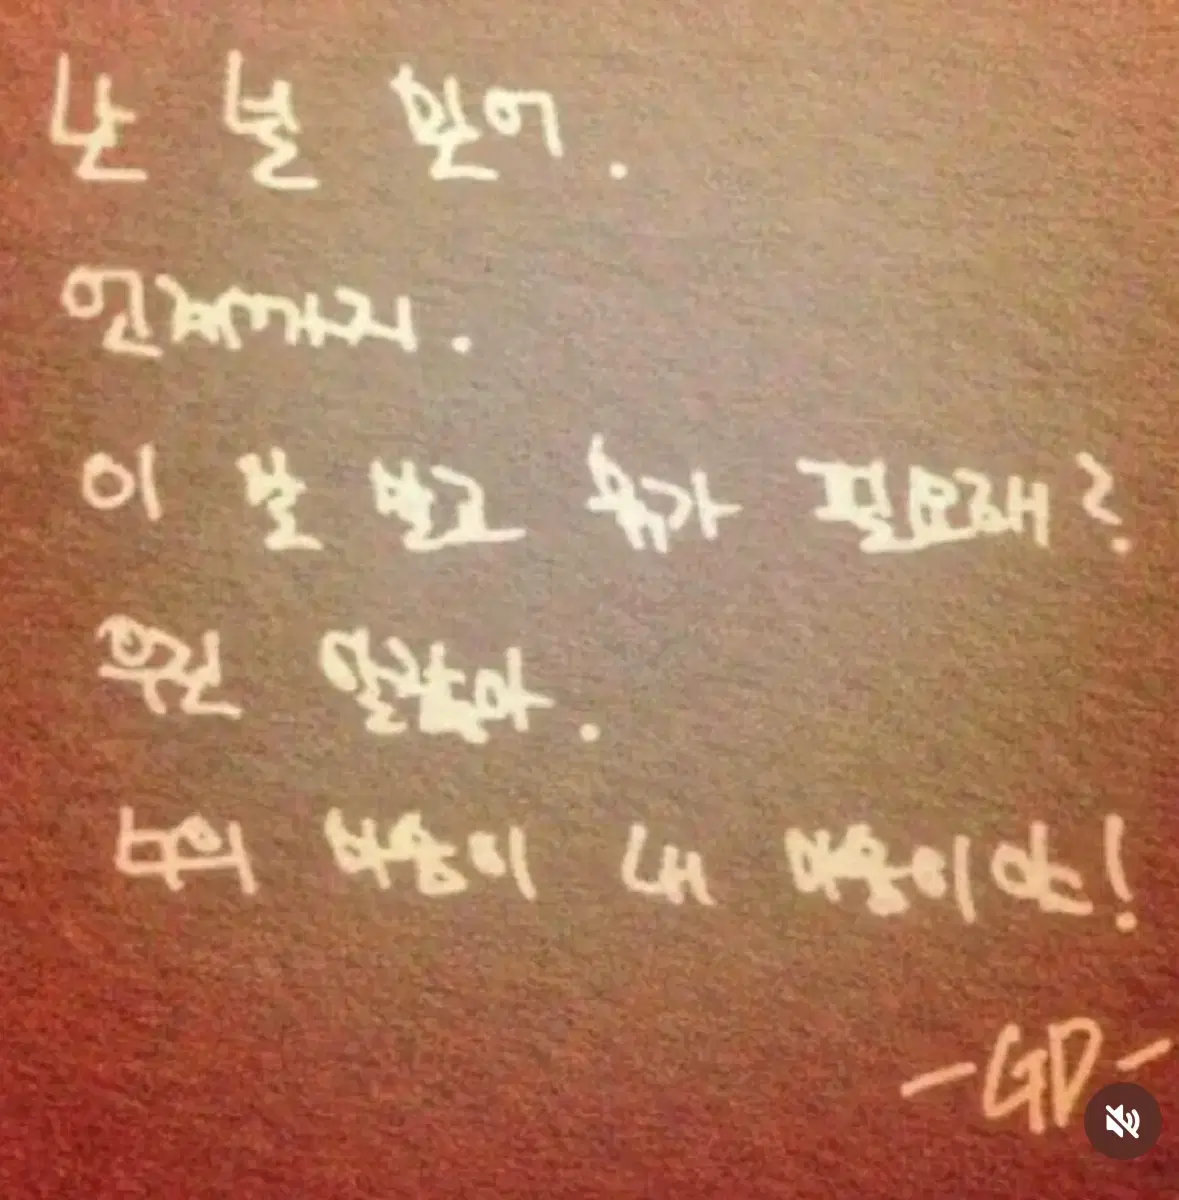 난 널 믿어.
언제까지.
이 말 말고 뭐가 필요해?
우린 알잖아.
너의 마음이 내 마음이야!
-GD-